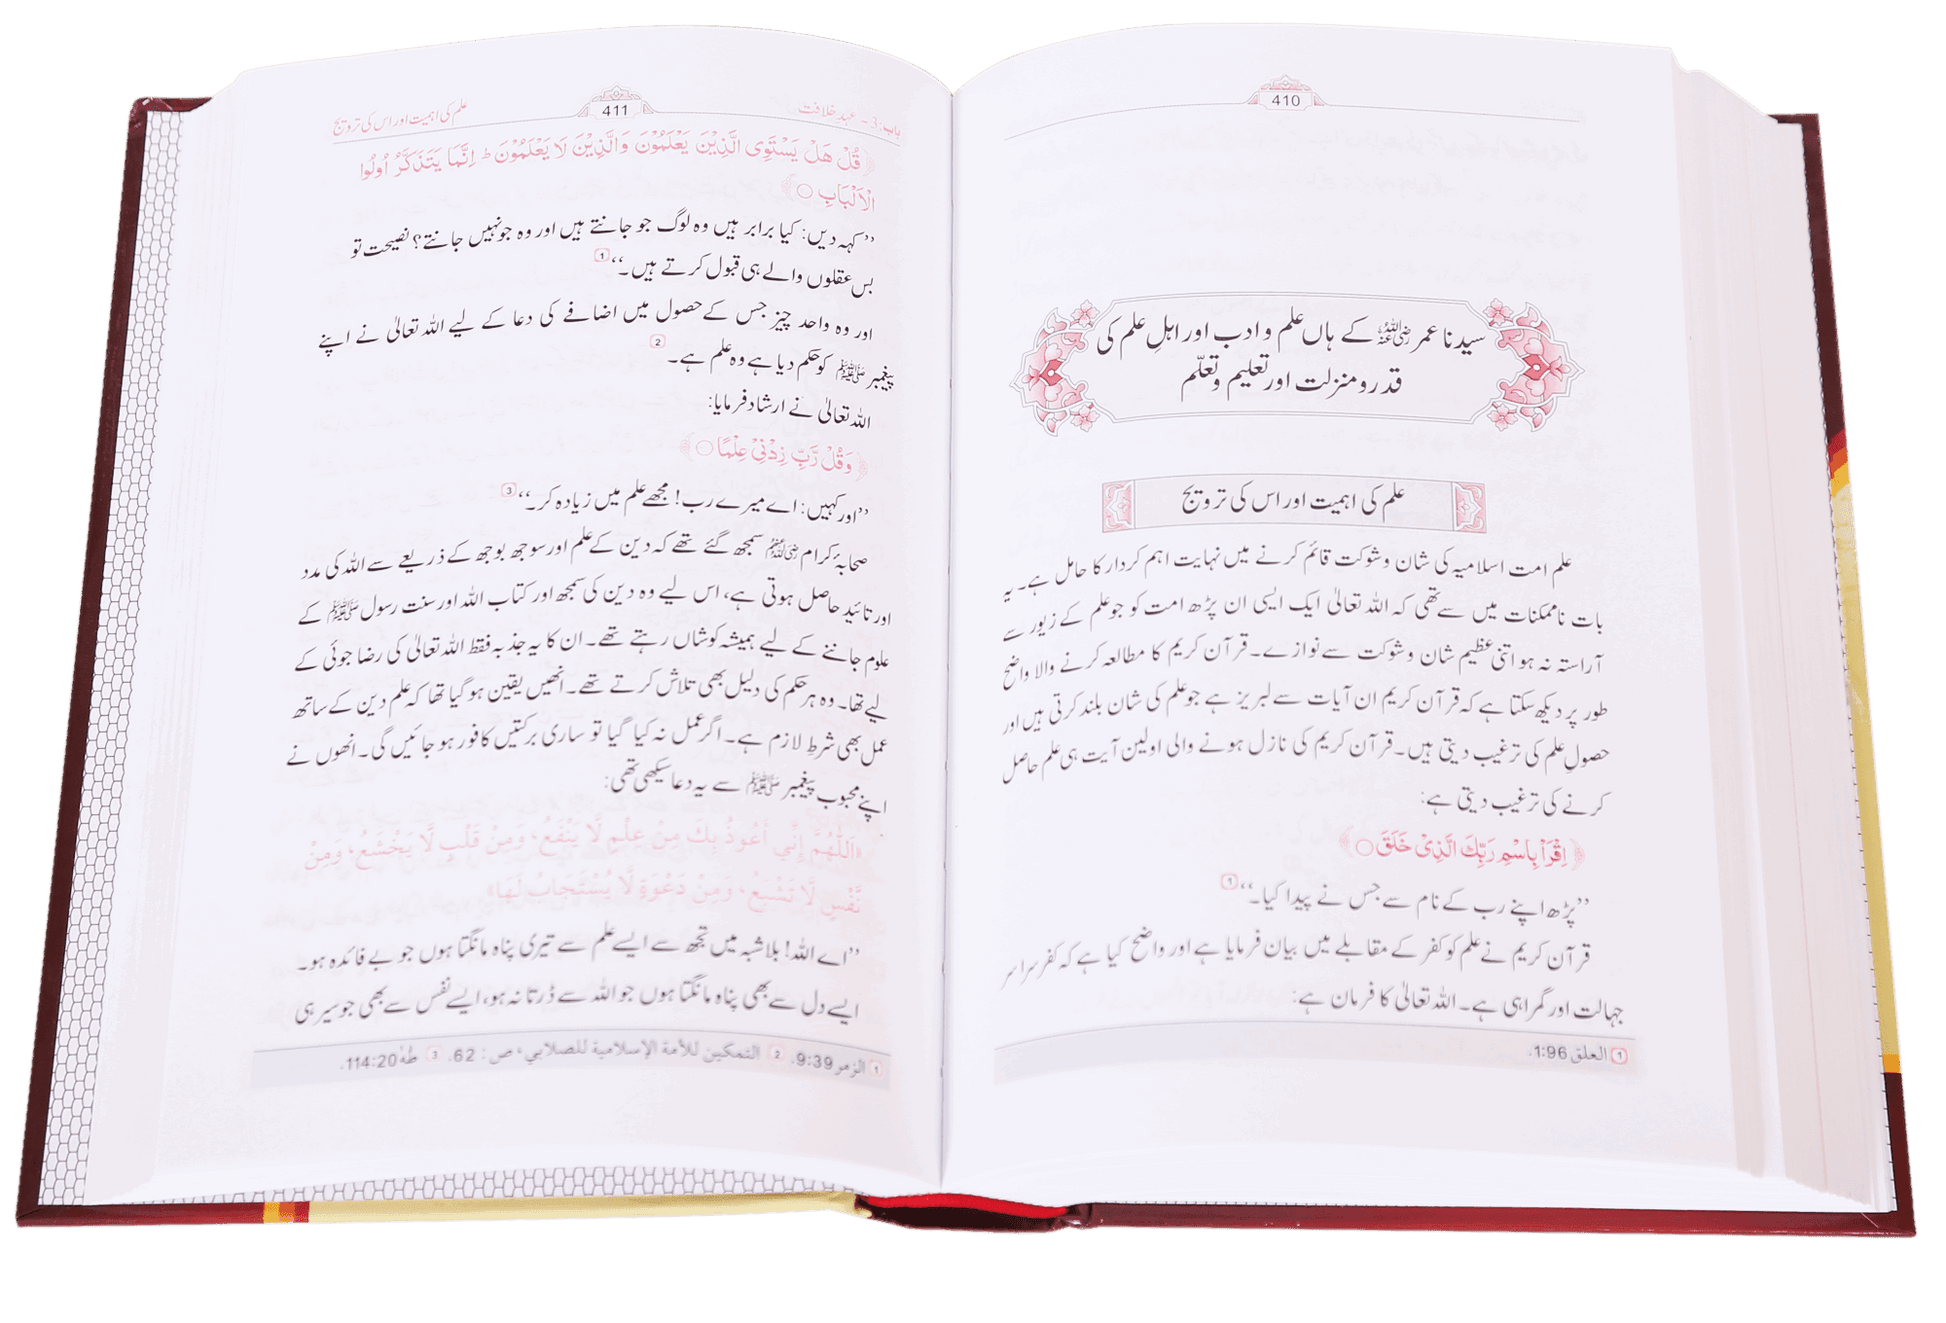 410
سیدنا عمر رضی اللہ عنہ کے ہاں علم و ادب اور اہلِ علم کی
قدر و منزلت اور تعلیم و تعلّم
علم کی اہمیت اور اس کی ترویج
علم امت اسلامیہ کی شان و شوکت قائم کرنے میں نہایت اہم کردار کا حامل ہے۔ یہ
بات ناممکنات میں سے تھی کہ اللہ تعالیٰ ایک ایسی ان پڑھ امت کو جو علم کے زیور سے
آراستہ نہ ہو اتنی عظیم شان و شوکت سے نوازے۔ قرآن کریم کا مطالعہ کرنے والا واضح
طور پر دیکھ سکتا ہے کہ قرآن کریم ان آیات سے لبریز ہے جو علم کی شان بلند کرتی ہیں اور
حصولِ علم کی ترغیب دیتی ہیں۔ قرآن کریم کی نازل ہونے والی اولین آیت ہی علم حاصل
کرنے کی ترغیب دیتی ہے:
﴿اِقْرَاْ بِاسْمِ رَبِّكَ الَّذِیْ خَلَقَ ○﴾
’’پڑھ اپنے رب کے نام سے جس نے پیدا کیا۔‘‘ 1
قرآن کریم نے علم کو کفر کے مقابلے میں بیان فرمایا ہے اور واضح کیا ہے کہ کفر سراسر
جہالت اور گمراہی ہے۔ اللہ تعالیٰ کا فرمان ہے:
1 العلق 1:96.
باب: 3 - عہد خلافت 411 علم کی اہمیت اور اس کی ترویج
﴿قُلْ هَلْ یَسْتَوِی الَّذِیْنَ یَعْلَمُوْنَ وَالَّذِیْنَ لَا یَعْلَمُوْنَ ط اِنَّمَا یَتَذَكَّرُ اُولُوا
الْاَلْبَابِ ○﴾
’’کہہ دیں: کیا برابر ہیں وہ لوگ جو جانتے ہیں اور وہ جو نہیں جانتے؟ نصیحت تو
بس عقلوں والے ہی قبول کرتے ہیں۔‘‘ 1
اور وہ واحد چیز جس کے حصول میں اضافے کی دعا کے لیے اللہ تعالیٰ نے اپنے
پیغمبر ﷺ کو حکم دیا ہے وہ علم ہے۔ 2
اللہ تعالیٰ نے ارشاد فرمایا:
﴿وَقُلْ رَّبِّ زِدْنِیْ عِلْمًا ○﴾
’’اور کہیں: اے میرے رب! مجھے علم میں زیادہ کر۔‘‘ 3
صحابۂ کرام رضی اللہ عنہم سمجھ گئے تھے کہ دین کے علم اور سوجھ بوجھ کے ذریعے سے اللہ کی مدد
اور تائید حاصل ہوتی ہے، اس لیے وہ دین کی سمجھ اور کتاب اللہ اور سنت رسول ﷺ کے
علوم جاننے کے لیے ہمیشہ کوشاں رہتے تھے۔ ان کا یہ جذبہ فقط اللہ تعالیٰ کی رضا جوئی کے
لیے تھا۔ وہ ہر حکم کی دلیل بھی تلاش کرتے تھے۔ انھیں یقین ہو گیا تھا کہ علم دین کے ساتھ
عمل بھی شرطِ لازم ہے۔ اگر عمل نہ کیا گیا تو ساری برکتیں کافور ہو جائیں گی۔ انھوں نے
اپنے محبوب پیغمبر ﷺ سے یہ دعا سیکھی تھی:
«اَللّٰهُمَّ إِنِّي أَعُوذُ بِكَ مِنْ عِلْمٍ لَّا يَنْفَعُ، وَمِنْ قَلْبٍ لَّا يَخْشَعُ، وَمِنْ
نَّفْسٍ لَّا تَشْبَعُ، وَمِنْ دَعْوَةٍ لَّا يُسْتَجَابُ لَهَا»
’’اے اللہ! بلاشبہ میں تجھ سے ایسے علم سے تیری پناہ مانگتا ہوں جو بے فائدہ ہو۔
ایسے دل سے بھی پناہ مانگتا ہوں جو اللہ سے ڈرتا نہ ہو، ایسے نفس سے بھی جو سیر ہی
1 الزمر 9:39. 2 التمكين للأمة الإسلامية للصلابي، ص: 62. 3 طه 114:20.